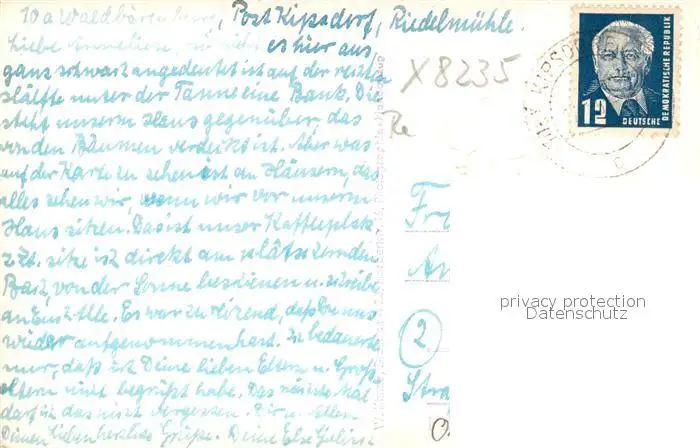 10a Waldbärenburg, Post Kipsdorf, Riedelmühle.
Liebe Annelies, so sieht es hier aus,
ganz schwach angedeutet ist auf der rechten
Hälfte unter der Tanne eine Bank. Die
steht unserm Haus gegenüber, das
von den Bäumen verdeckt ist. Aber was
auf der Karte zu sehen ist an Häusern, das
alles sehen wir, wenn wir vor unserm
Haus sitzen. Das ist unser Kaffeeplatz,
z. Zt. sitze ich direkt am plätschernden
Bach, von der Sonne beschienen u. schreibe
an Euch Alle. Es war zu reizend, daß Du uns
wieder aufgenommen hast. Ich bedauerte
nur, daß ich Deine lieben Eltern u. Groß-
eltern nicht begrüßt habe. Das nächste Mal
darf ich das nicht vergessen. Dir u. Allen
Deinen lieben herzliche Grüße. Deine Else
X8235
Re
12
DEUTSCHE
DEMOKRATISCHE REPUBLIK
KIPSD
c
Fr
An
2
Stra
privacy protection
Datenschutz